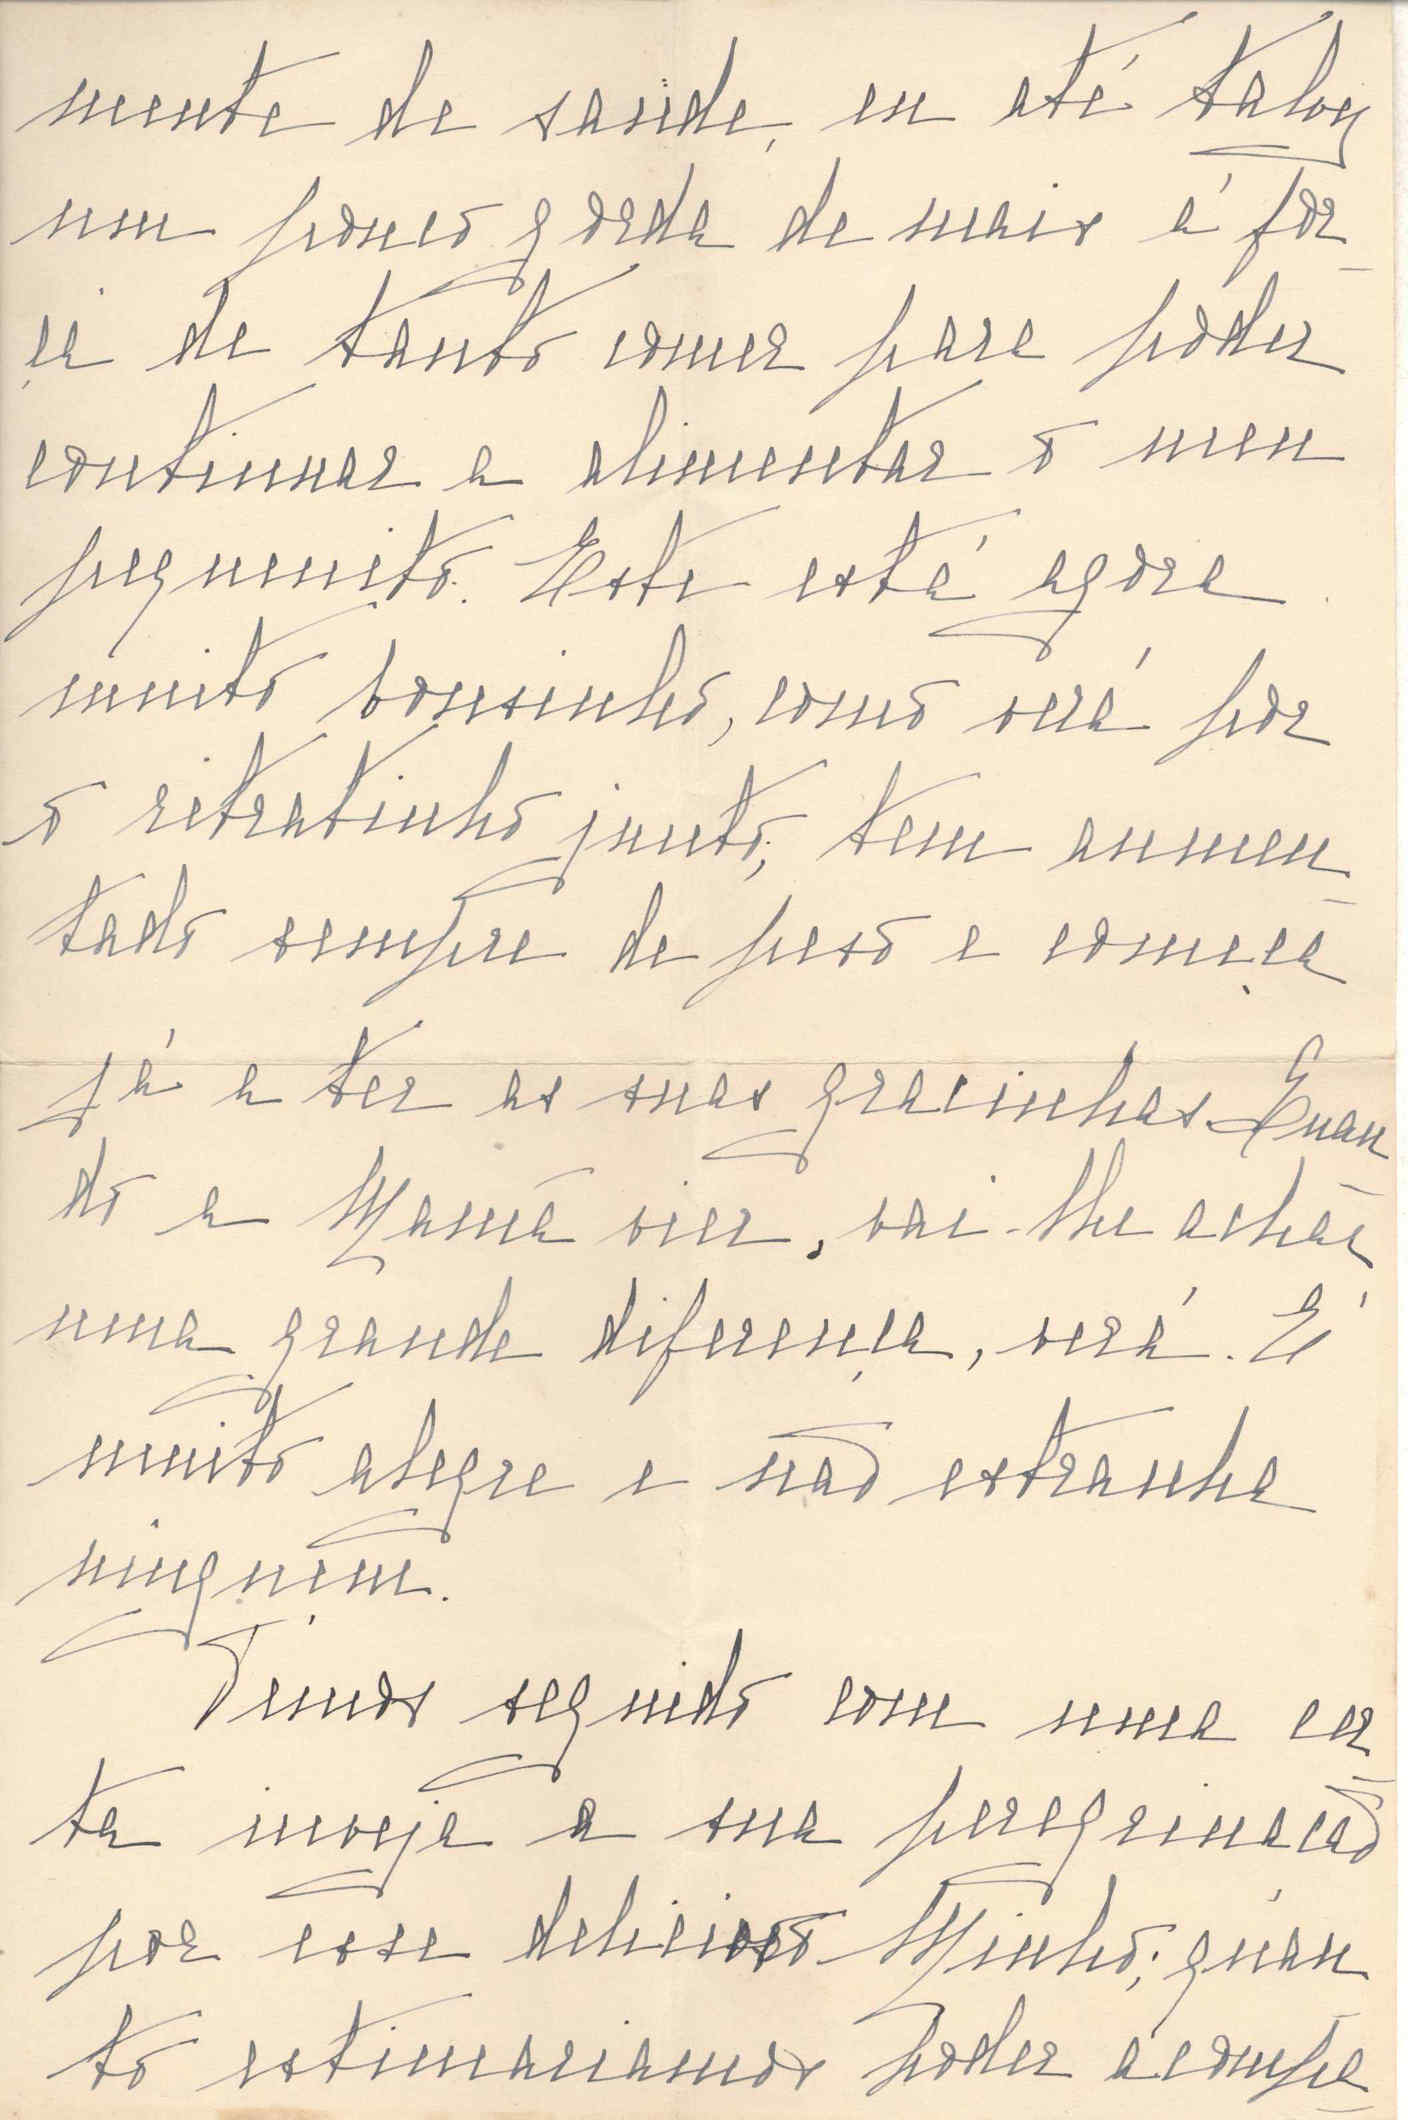 mente de saude, eu até talvez
um pouco gorda de mais á for-
ça de tanto comer para poder
continuar a alimentar o meu
pequenito. Este está agora
muito bonsinho, como verá por
o retratinho junto; tem aumen-
tado sempre de peso e começa
já a ter as suas gracinhas. Quan-
do a Mamã vier, vai-lhe achar
uma grande diferença, verá. É
muito alegre e não extranha
ninguem.
Temos seguido com uma cer-
ta inveja a sua peregrinação
por esse delicioso Minho; quan-
to estimariamos poder acompa-